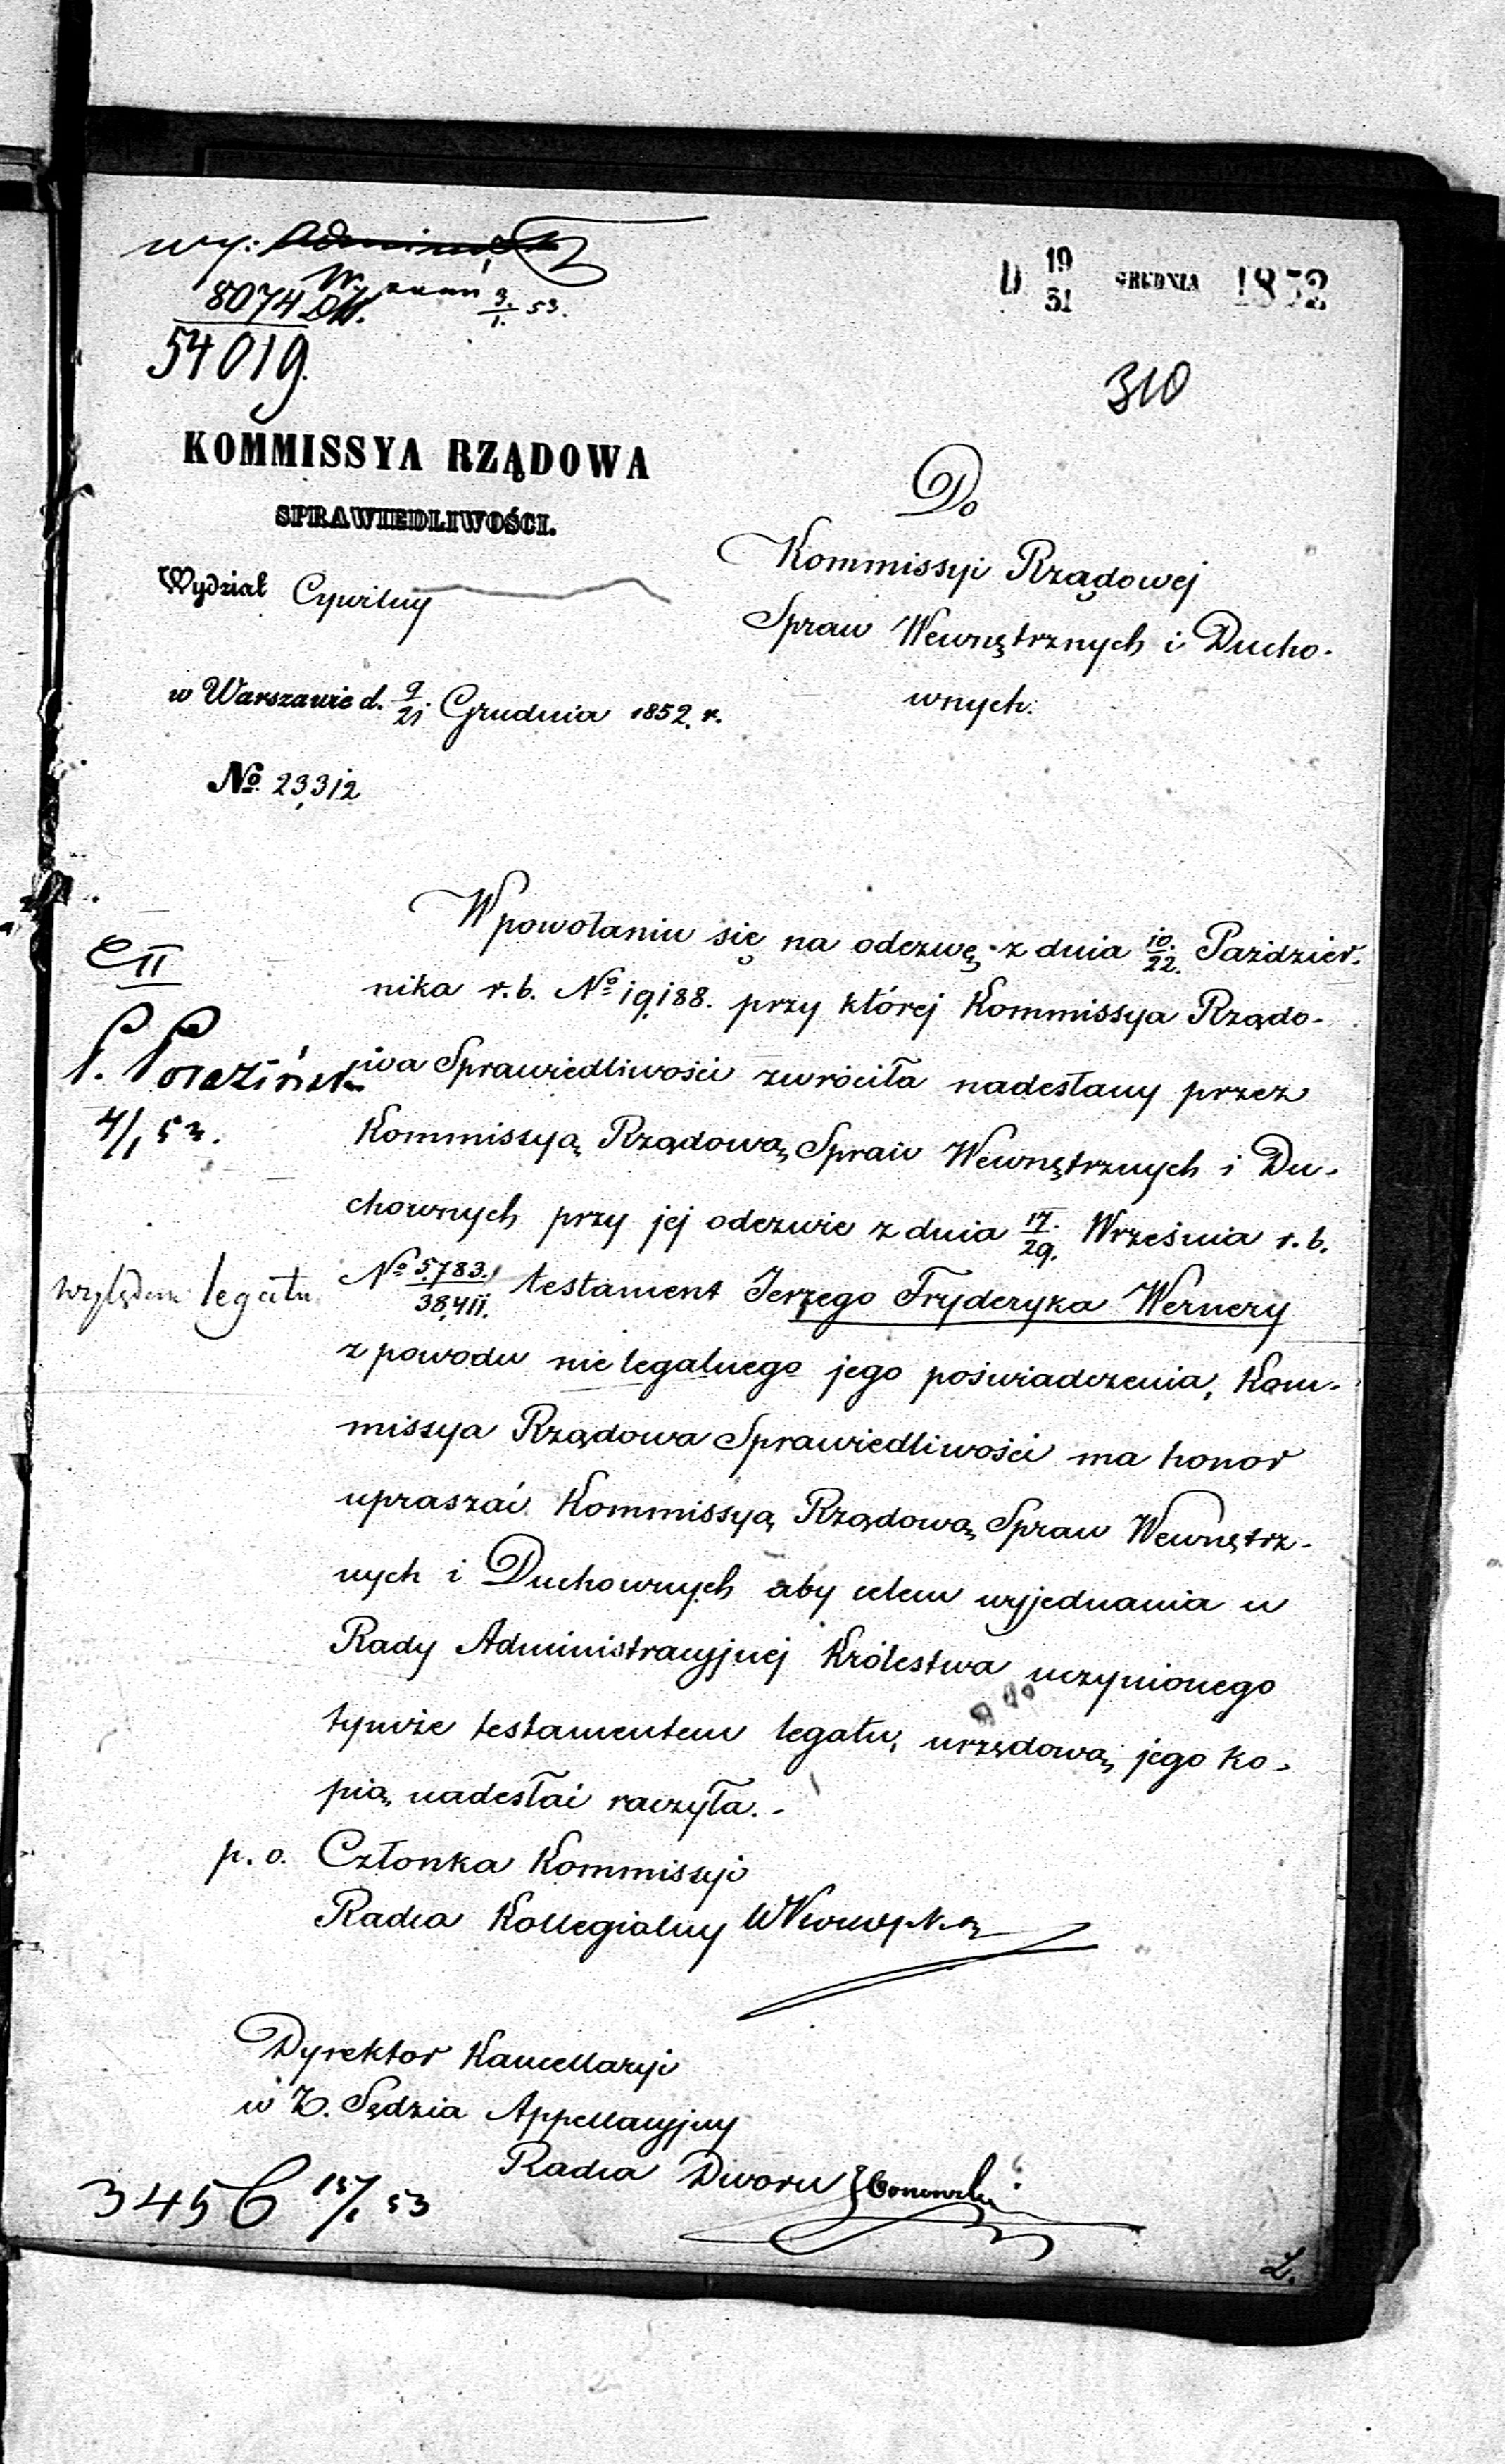 wy:
8074
54019.
9/1. 53.
D 19/31 GRUDNIA 1852
310
KOMMISSYA RZĄDOWA
SPRAWIEDLIWOŚCI.
Wydział Cywilny
w Warszawie d. 9/21. Grudnia 1852. r.
No 23312
Do
Kommissyi Rządowej
Spraw Wewnętrznych i Ducho-
wnych.
W powołaniu się na odezwę z dnia 10./22. Paździer-
nika r.b. No 19188. przy której Kommissya Rządo-
wa Sprawiedliwości zwróciła nadesłany przez
Kommissyą Rządową Spraw Wewnętrznych i Du-
chownych przy jej odezwie z dnia 17./29. Września r.b.
No 5783./38411. testament Jerzego Fryderyka Wernery
z powodu nie legalnego jego poświadczenia, Kom-
missya Rządowa Sprawiedliwości ma honor
upraszać Kommissyą Rządową Spraw Wewnętrz-
nych i Duchownych aby celem wyjednania u
Rady Administracyjnej Królestwa uczynionego
tymże testamentem legatu, urzędową jego ko-
pią nadesłać raczyła.-
CII
4/1 53.
względem legatu
p. o. Członka Kommissyi
Radca Kollegialny
Dyrektor Kancellaryi
w Z. Sędzia Appellacyjny
Radca Dworu
3456 15/1 53
L.